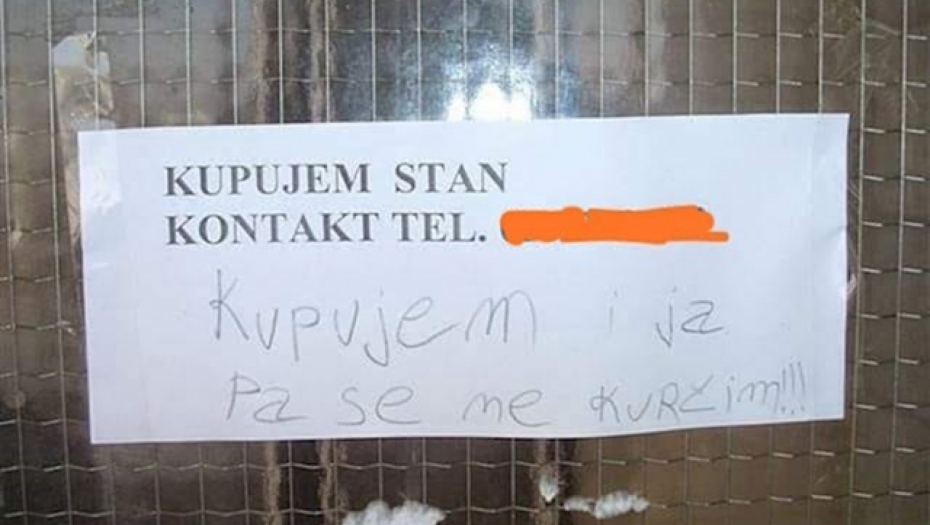 KUPUJEM STAN
KONTAKT TEL.
Kupujem i ja
Pa se ne KURČim!!!